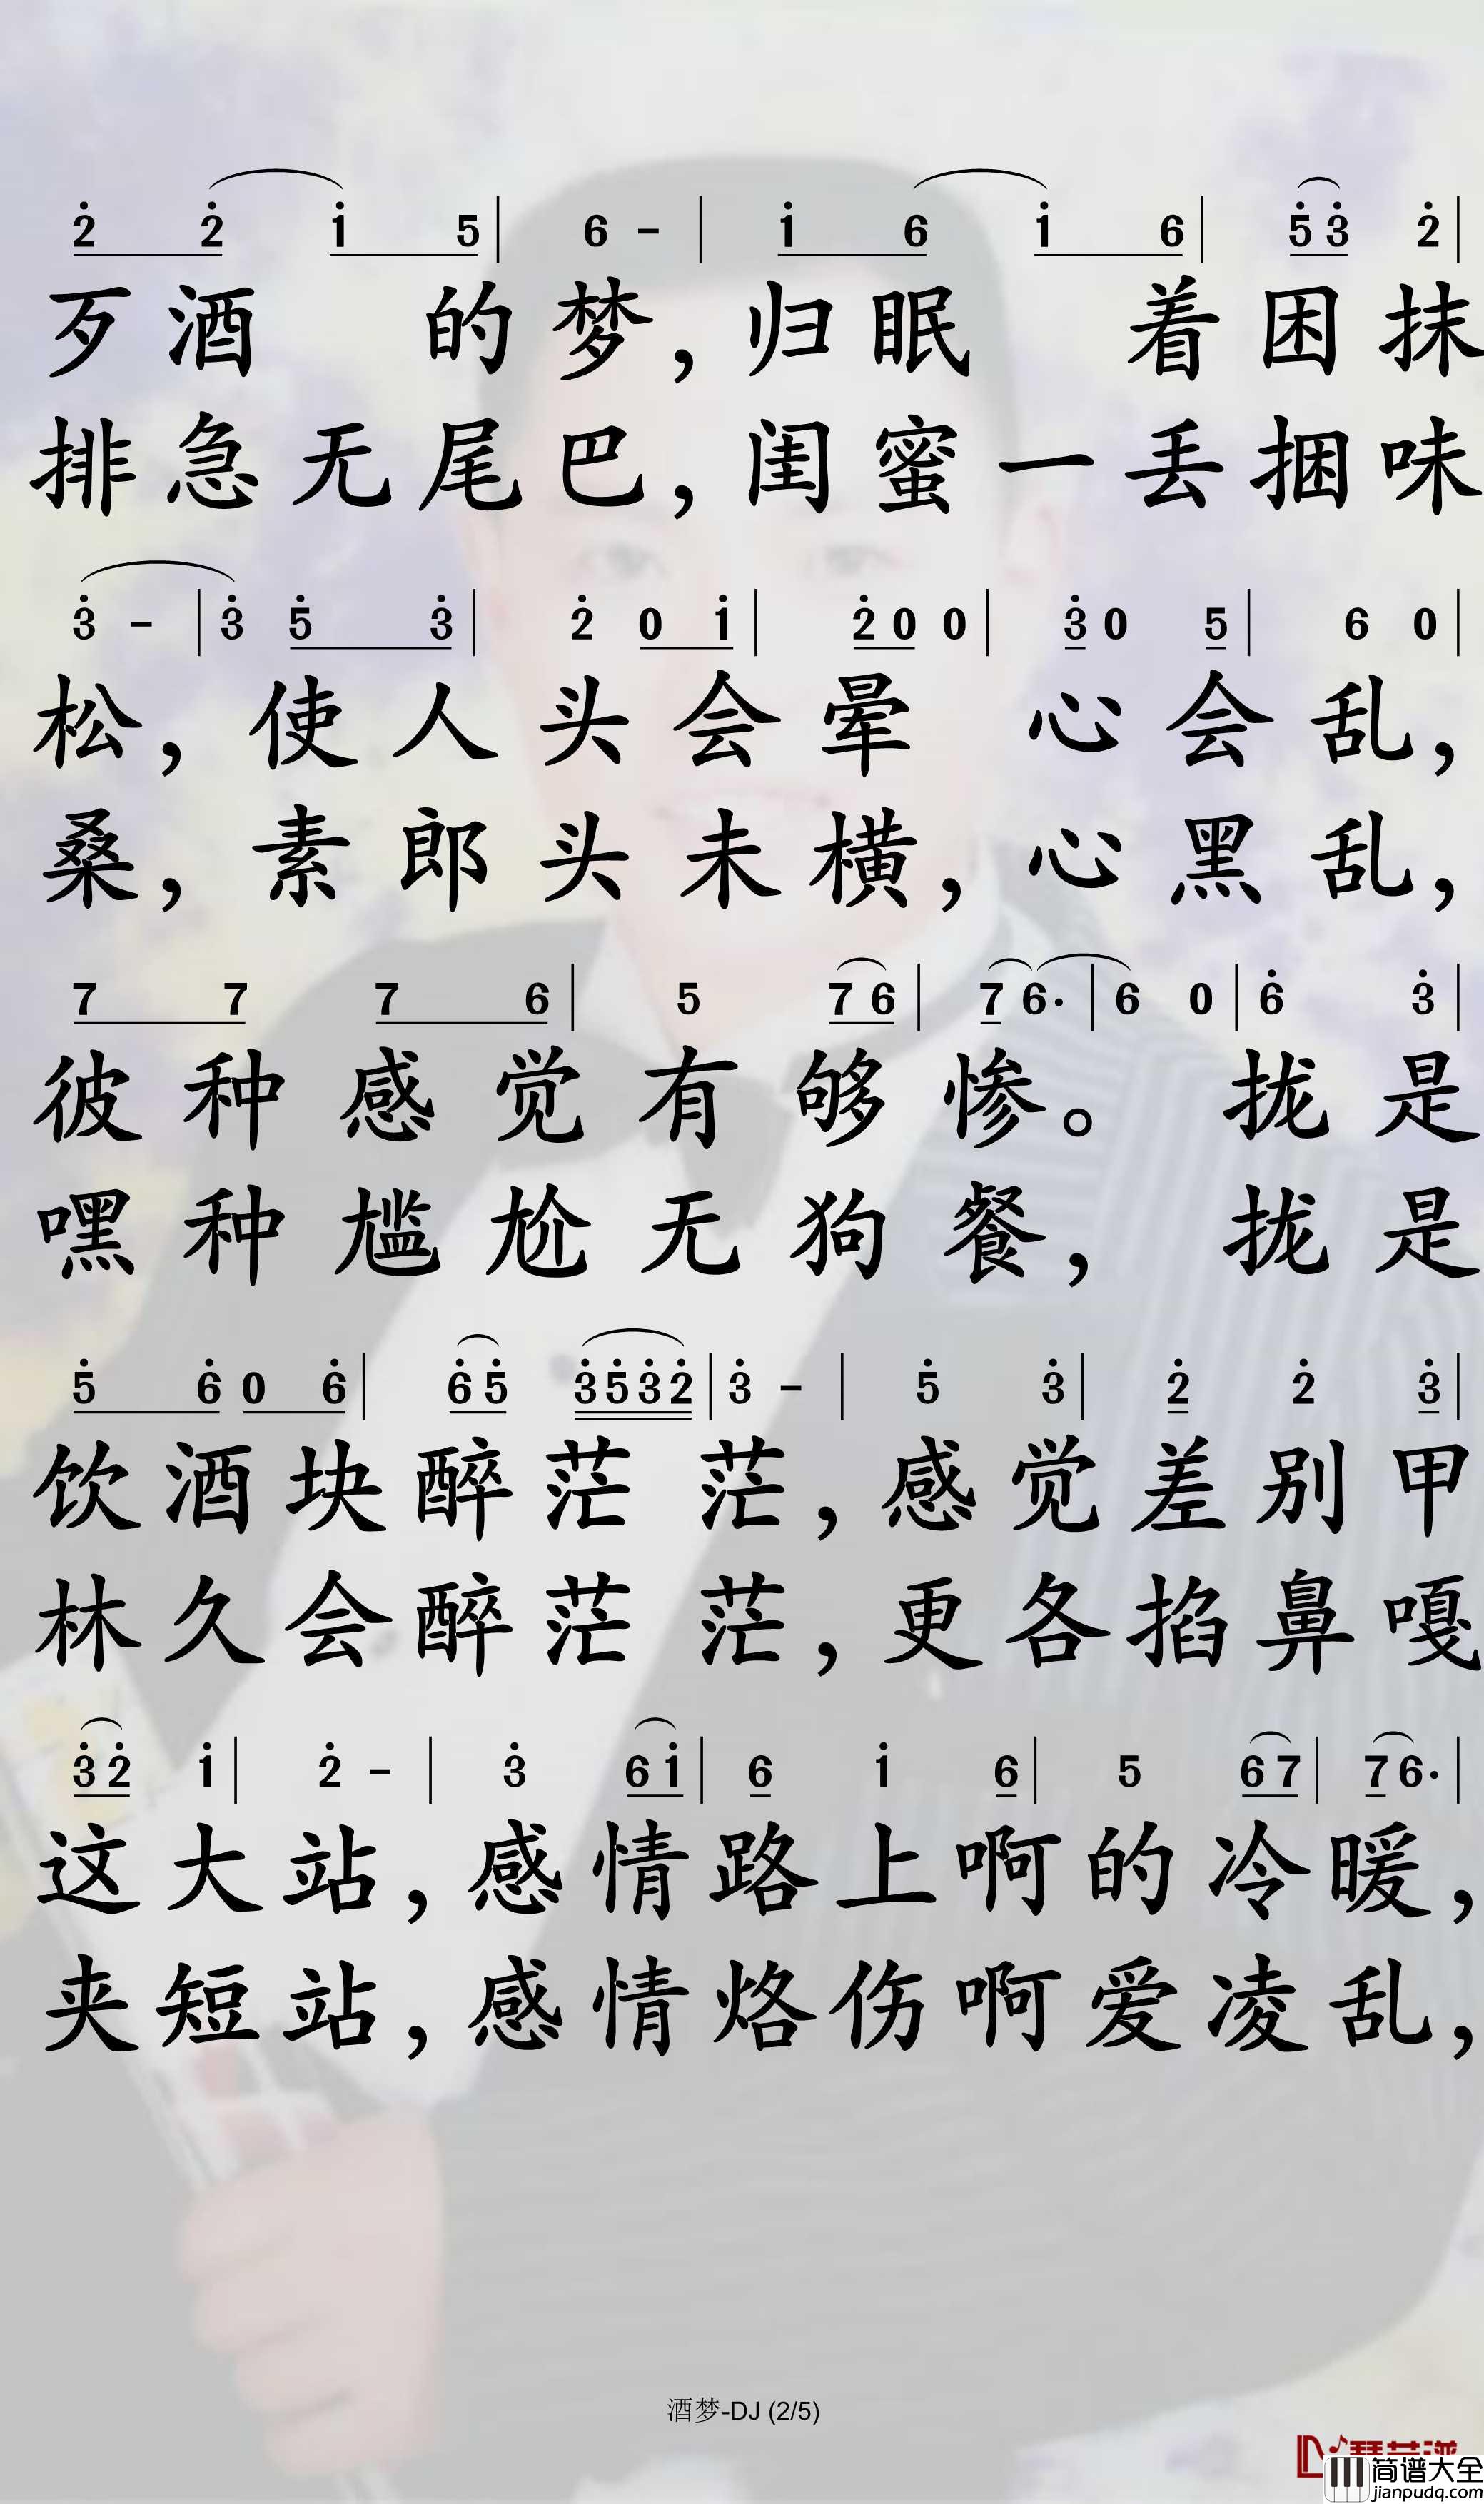 2̇ 2̇ 1̇ 5 | 6 - | 1̇ 6 1̇ 6 | 5̇ 3̇ 2̇ |
歹酒 的梦，归眠 着困抹
排急无尾巴，闺蜜一丢捆味
3̇ - | 3̇ 5̇ 3̇ | 2̇ 0 1̇ | 2̇ 0 0 | 3̇ 0 5 | 6 0 |
松，使人头会晕 心会乱，
桑，素郎头未横，心黑乱，
7 7 7 6 | 5 7 6 | 7 6· | 6 0 | 6̇ 3̇ |
彼种感觉有够惨。 拢是
嘿种尴尬无狗餐， 拢是
5̇ 6̇ 0 6̇ | 6̇ 5̇ 3̇ 5̇ 3̇ 2̇ | 3̇ - | 5̇ 3̇ | 2̇ 2̇ 3̇ |
饮酒块醉茫茫，感觉差别甲
林久会醉茫茫，更各掐鼻嘎
3̇ 2̇ 1̇ | 2̇ - | 3̇ 6 1̇ | 6 1̇ 6 | 5 6 7 | 7 6· |
这大站，感情路上啊的冷暖，
夹短站，感情烙伤啊爱凌乱，
酒梦-DJ (2/5)
简谱大全
jianpudq.com